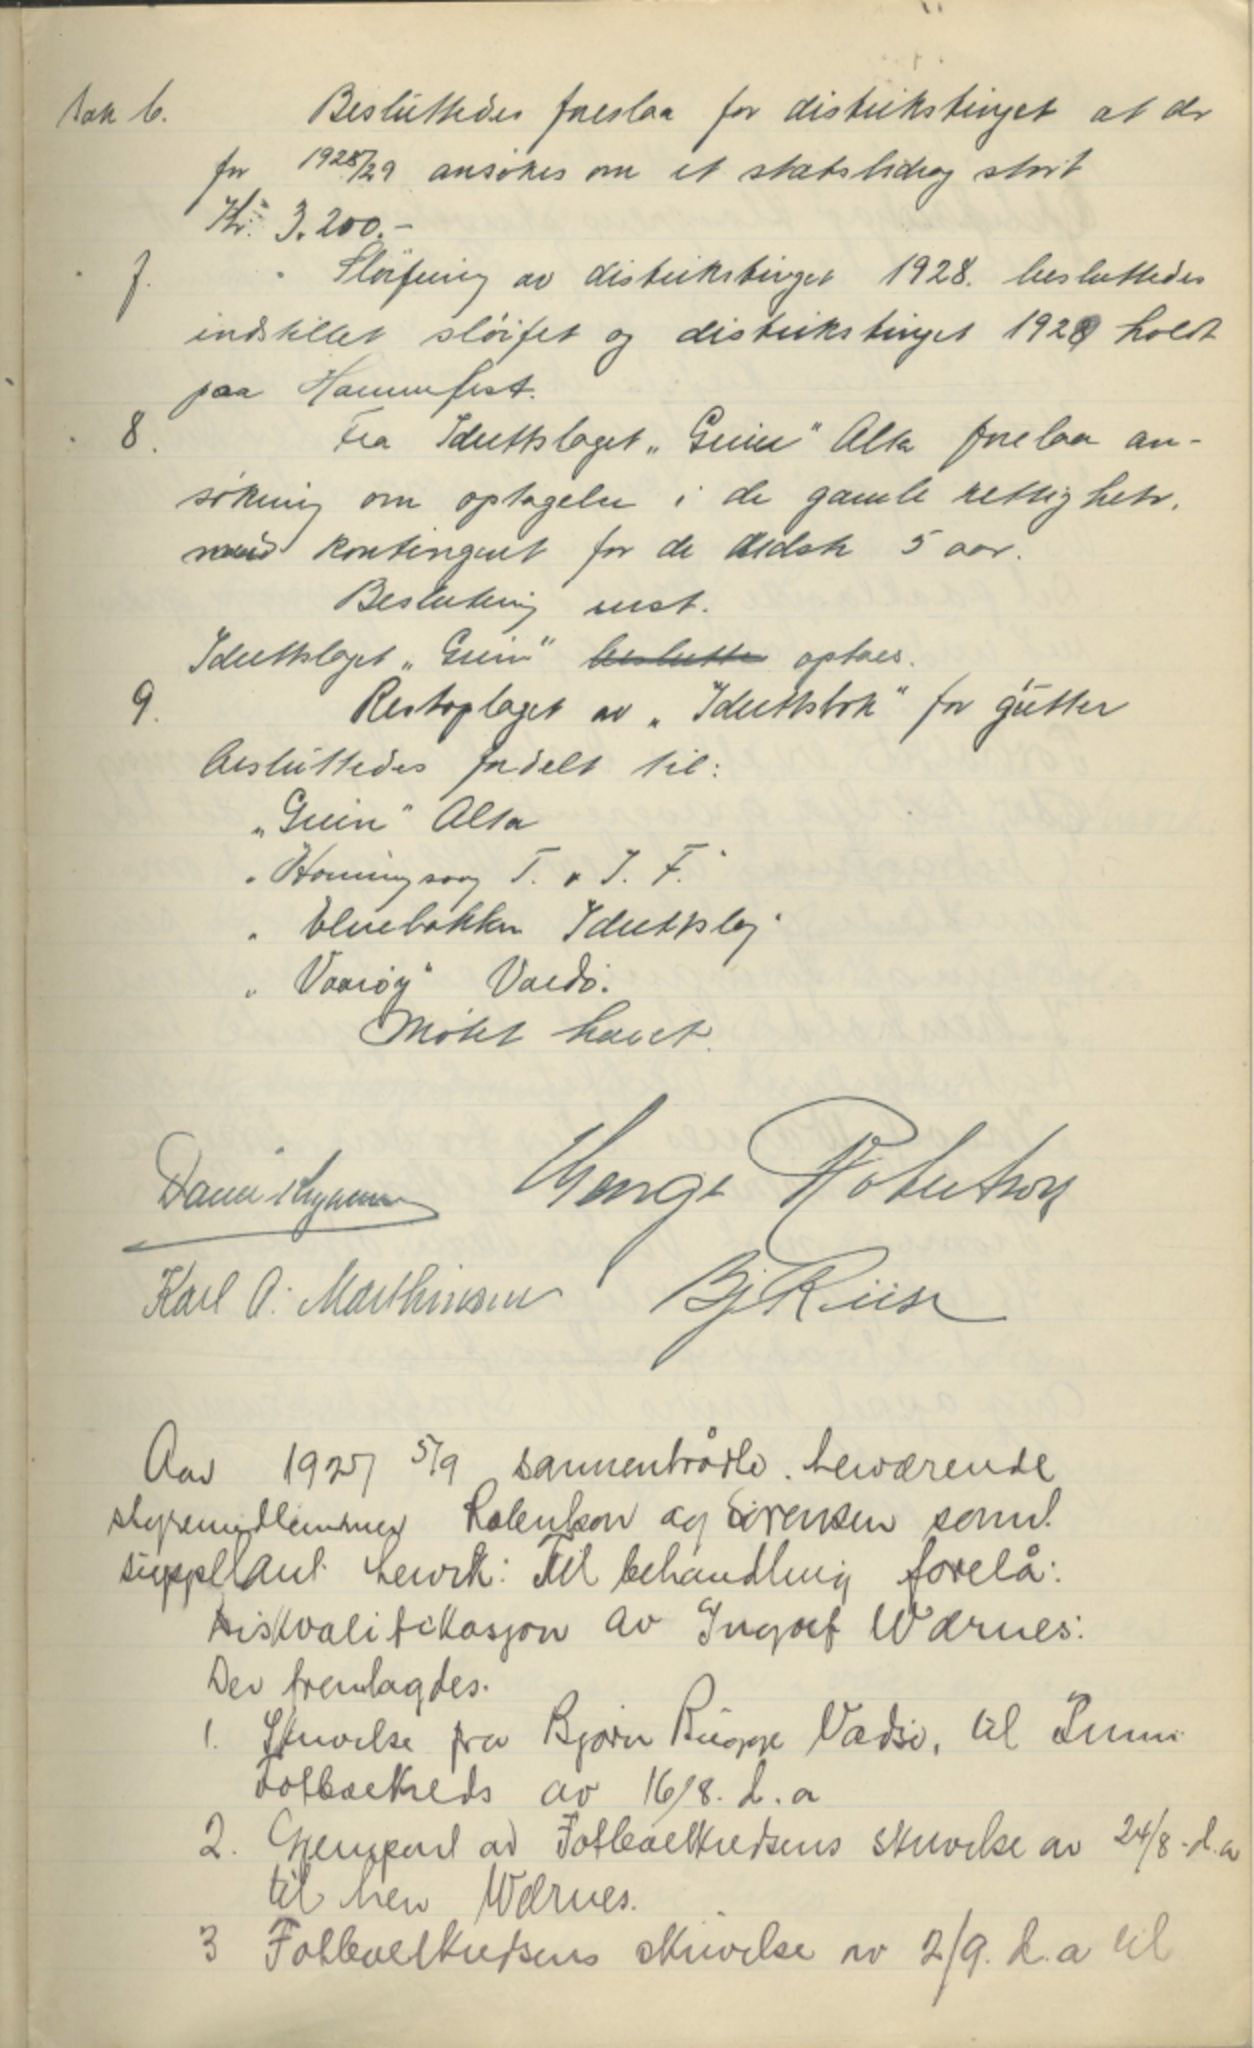 Sak 6. Besluttedes foreslaa for distrikstinget at der
for 1928/29 ansökes om et statsbidrag stort
Kr. 3.200.-
" 7. Slöifning av distrikstinget 1928. besluttedes
indstillet slöifet og distrikstinget 1928 holdt
paa Hammerfest.
" 8. Fra Idrettslaget "Grein" Alta forelaa an-
sökning om optagelse i de gamle rettigheter,
mod kontingent for de sidste 5 aar.
Beslutning enst.
Idrettslaget "Grein" beslutte optaes.
9. Restoplaget av "Idrettsbok" for gutter
besluttedes fordelt til:
"Grein" Alta
" Honningsvaag T. & I. F."
" Elvebakken Idrettslag"
" Vaarøy" Vardö.
Møtet hævet.
George Robertson
Karl A. Marthinsen Bj Riise
Aar 1927 5/9 sammentrådte herværende
styremedlemmer Robertson og Sørensen samt
suppleant Henrik: Til behandling forelå:
Diskvalifikasjon av Ingolf Wærnes:
Der fremlagdes.
1. Skrivelse fra Bjørn Bugge Vadsø, til Finnm.
Fotbalkreds av 16/8. d.a
2. Gjenpart av Fotbalkredsens skrivelse av 24/8-d.a
til herr Wærnes.
3 Fotbalkredsens skrivelse av 2/9. d.a til